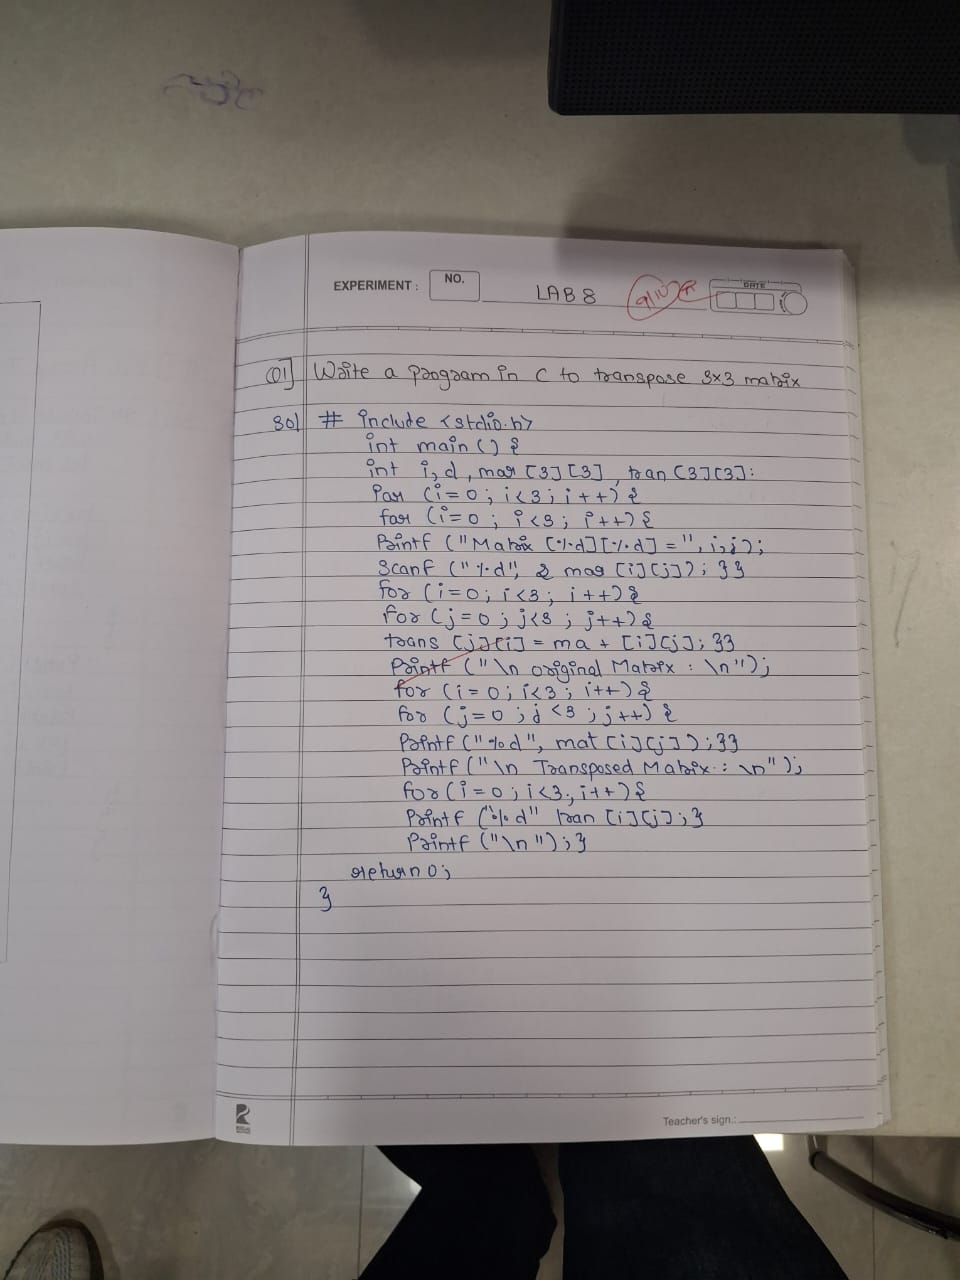 EXPERIMENT :
NO.
LAB 8
9/10
DATE
Q1] Write a program in C to transpose 3x3 matrix
Sol # include <stdio.h>
int main () {
int i, d, mar [3] [3], tran [3][3]:
For (i=0; i<3; i++) {
for (i=0; i<3; i++) {
Printf ("Matrix [%d][%d] =", i,j);
Scanf ("%d", & mag [i][j]); }}
for (i=0; i<3; i++) {
For (j=0; j<3; j++) {
trans [j][i] = ma + [i][j]; }}
Printf ("\n original Matrix : \n");
for (i=0; i<3; i++) {
for (j=0; j<3; j++) {
Printf ("%d", mat [i][j]); }}
Printf ("\n Transposed Matrix : \n");
for (i=0; i<3; i++) {
Printf ("%d" tran [i][j]; }
Printf ("\n"); }
return 0;
}
Teacher's sign.: